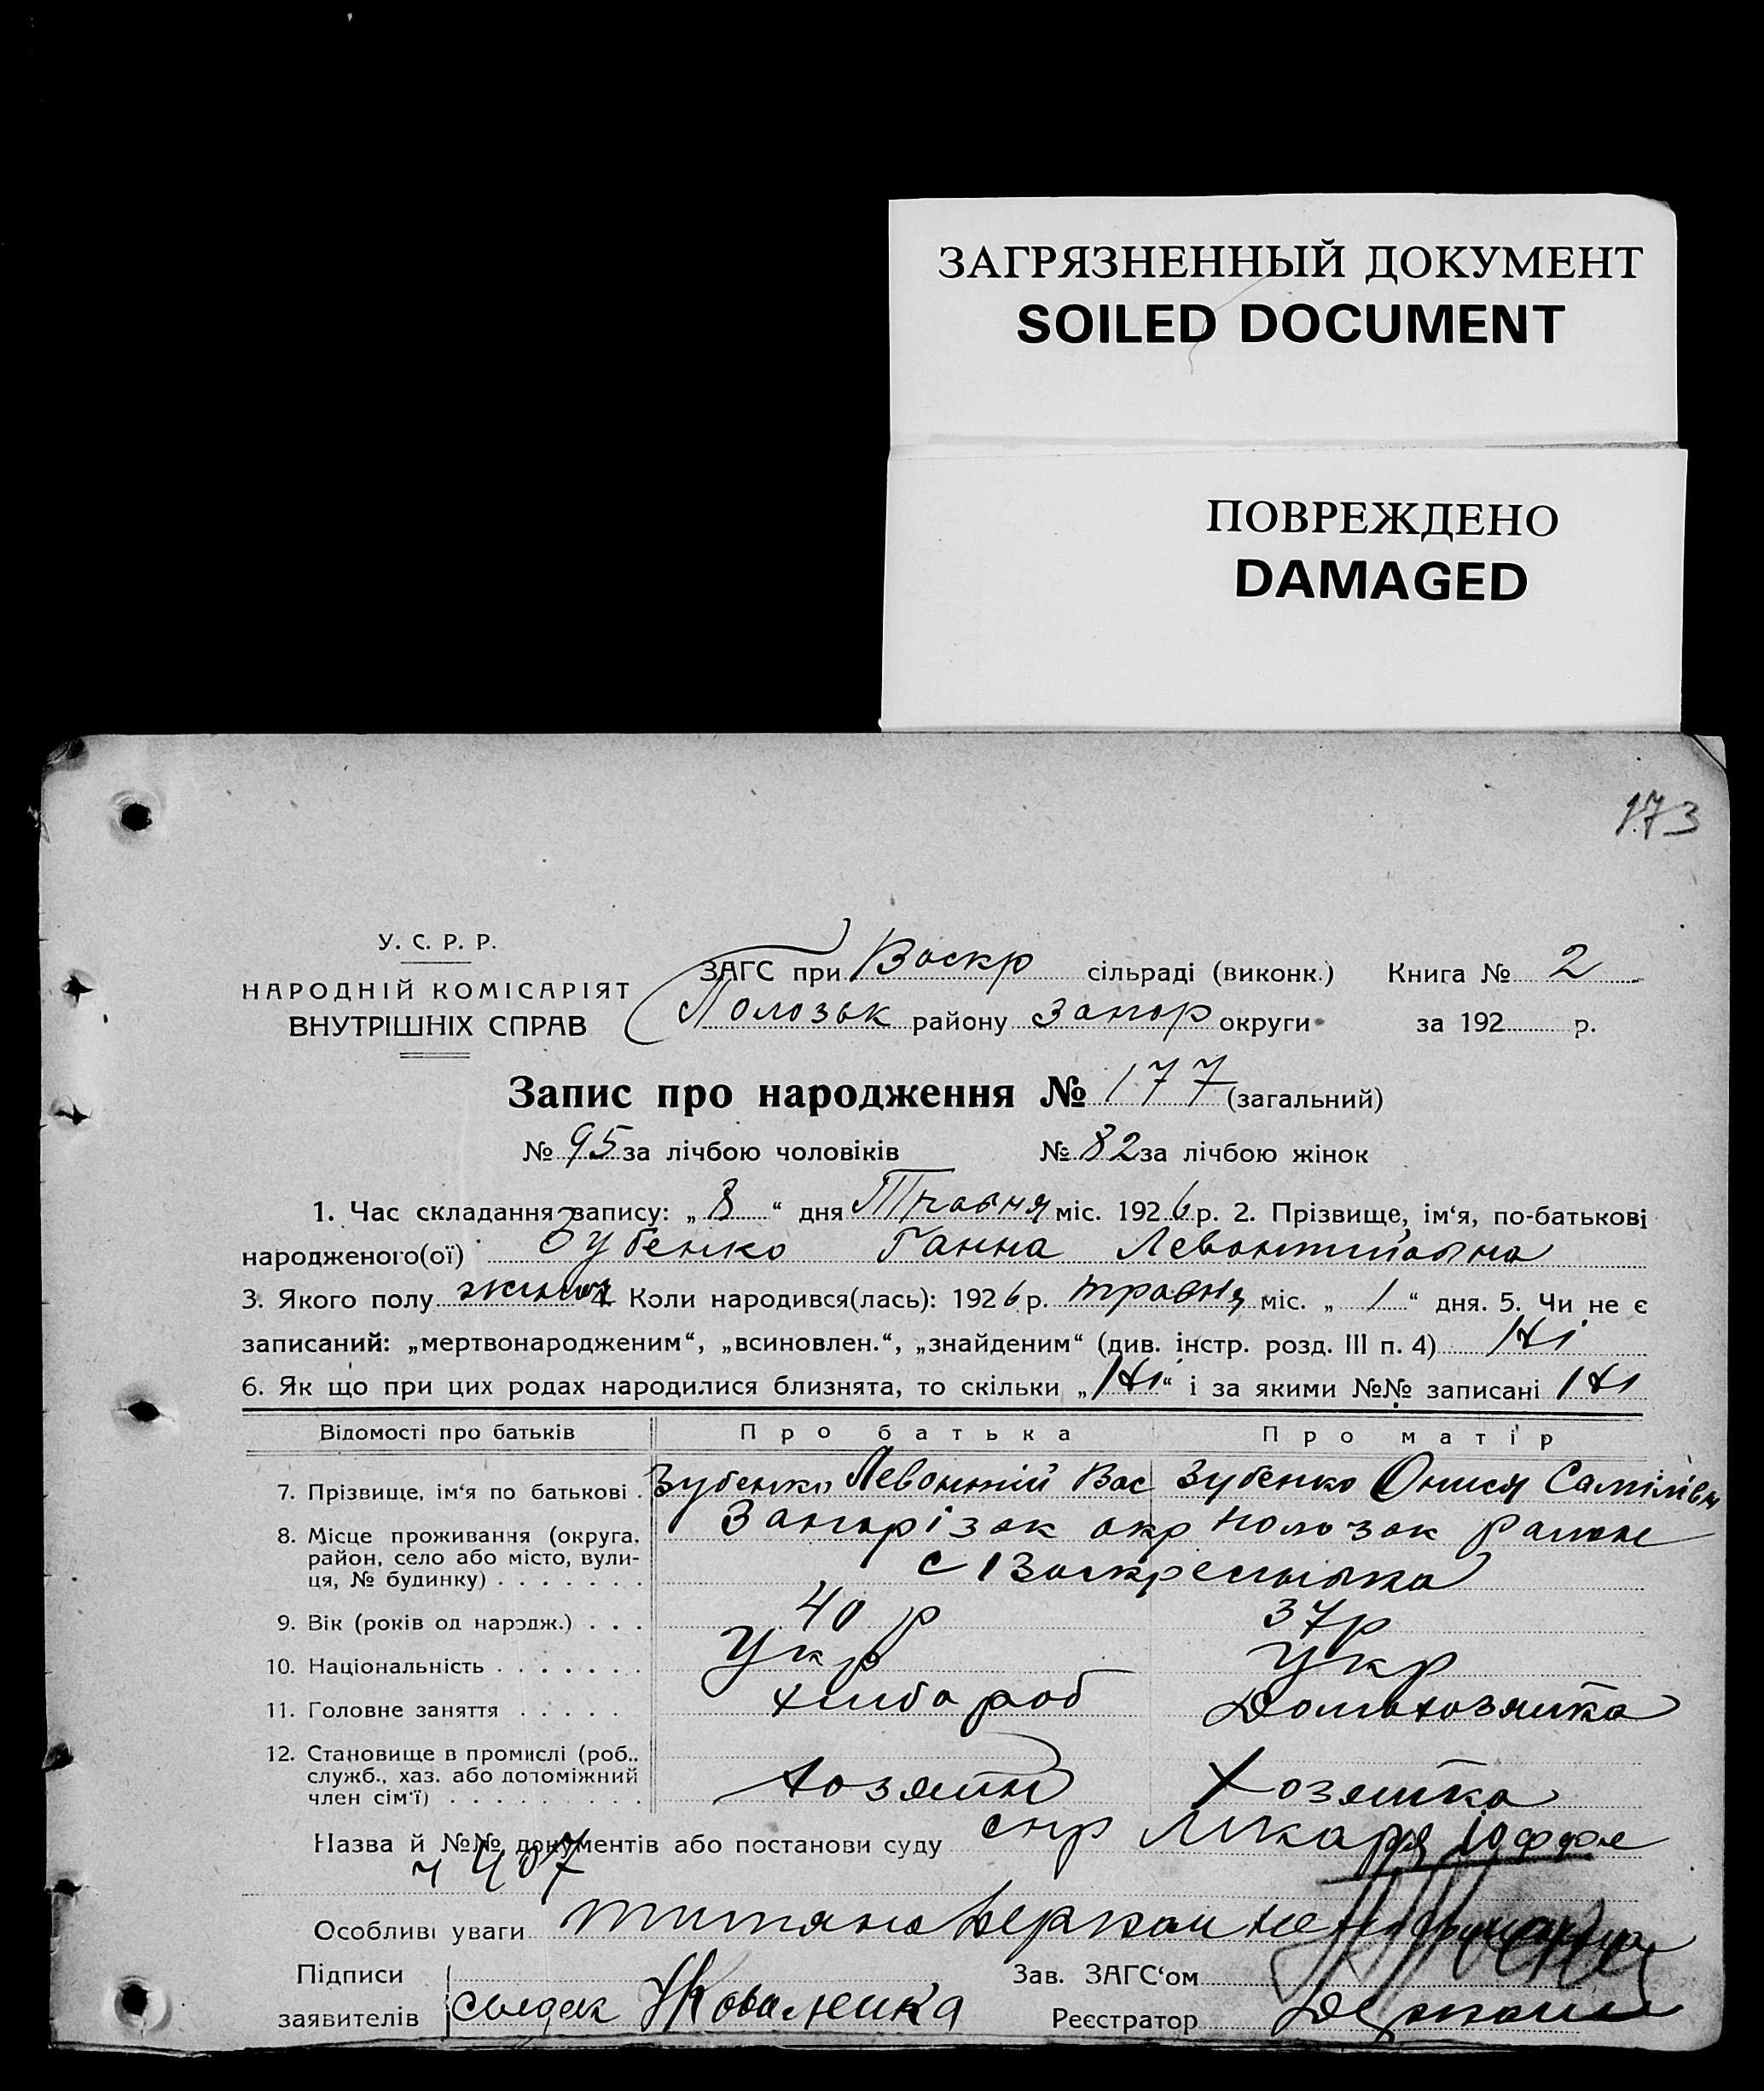 ЗАГРЯЗНЕННЫЙ ДОКУМЕНТ
SOILED DOCUMENT
ПОВРЕЖДЕНО
DAMAGED
173
У. С. Р. Р.
НАРОДНІЙ КОМІСАРІЯТ
ВНУТРІШНІХ СПРАВ
ЗАГС при Воскр сільраді (виконк.) Книга № 2
Полозьк району Запор округи за 192 р.
Запис про народження № 177 (загальний)
№ 95 за лічбою чоловіків № 82 за лічбою жінок
1. Час складання запису: „8“ дня Травня міс. 1926 р. 2. Прізвище, ім‘я, по-батькові
народженого(ої) Зубенко Ганна Левонтиївна
3. Якого полу жиноч 4. Коли народився(лась): 1926 р. травня міс. „1“ дня. 5. Чи не є
записаний: „мертвонародженим“, „всиновлен.“, „знайденим“ (див. інстр. розд. III п. 4) Ні
6. Як що при цих родах народилися близнята, то скільки „Ні“ і за якими №№ записані Ні
Відомості про батьків Про батька Про матір
7. Прізвище, ім‘я по батькові . Зубенко Левонтій Вас Зубенко Онися Самілівн
8. Місце проживання (округа, район, село або місто, вулиця, № будинку) Запорізак окр Полозак район
с Воскресенька
9. Вік (років од народж.) . . . 40 р 37 р
10. Національність Укр Укр
11. Головне заняття хлібороб Домохозяйка
12. Становище в промислі (роб., служб., хаз. або допоміжний член сім‘ї) хозяин хозяйка
Назва й №№ документів або постанови суду спр Лікаря Іоффе
ч 407
Особливі уваги
Підписи
заявителів свідек Коваленка
Зав. ЗАГС‘ом
Реєстратор Деркач